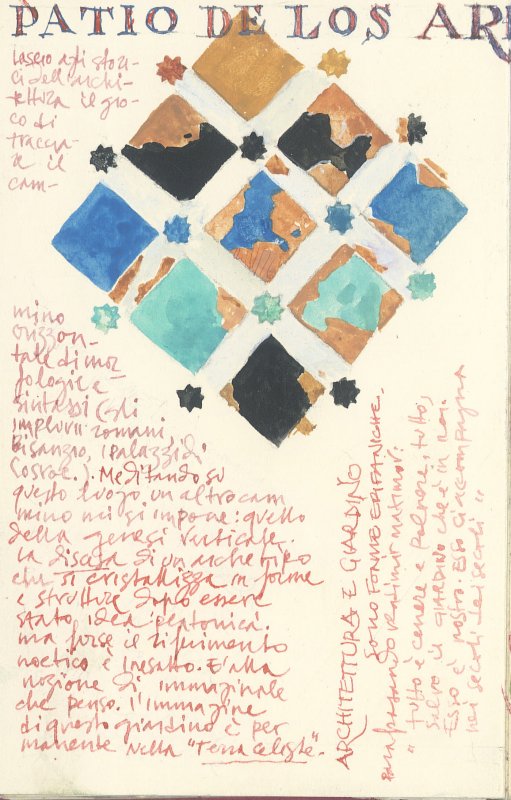 PATIO DE LOS AR
lascio agli stori-
ci dell'archi-
tettura il gio-
co di
traccia-
re il
cam-
mino
orizzon-
tale di mor
fologie e
sintassi (gli
impluvii romani,
Bisanzio, i palazzi di
Cosroe..). Meditando su
questo luogo un altro cam
mino mi si impone: quello
della genesi verticale.
La discesa di un archetipo
che si cristallizza in forme
e strutture dopo essere
stato idea platonica.
ma forse il riferimento
noetico è inesatto. E' alla
nozione di immaginale
che penso. l'immagine
di questo giardino è per
manente nella "Terra celeste".
ARCHITETTURA E GIARDINO
sono FORME EPIFANICHE.
parafrasando Ratimir matimor:
"tutto è cenere e polvere, tutto,
salvo il GIARDINO che è in noi.
Esso è nostro. Esso ci accompagna
nei secoli dei secoli"